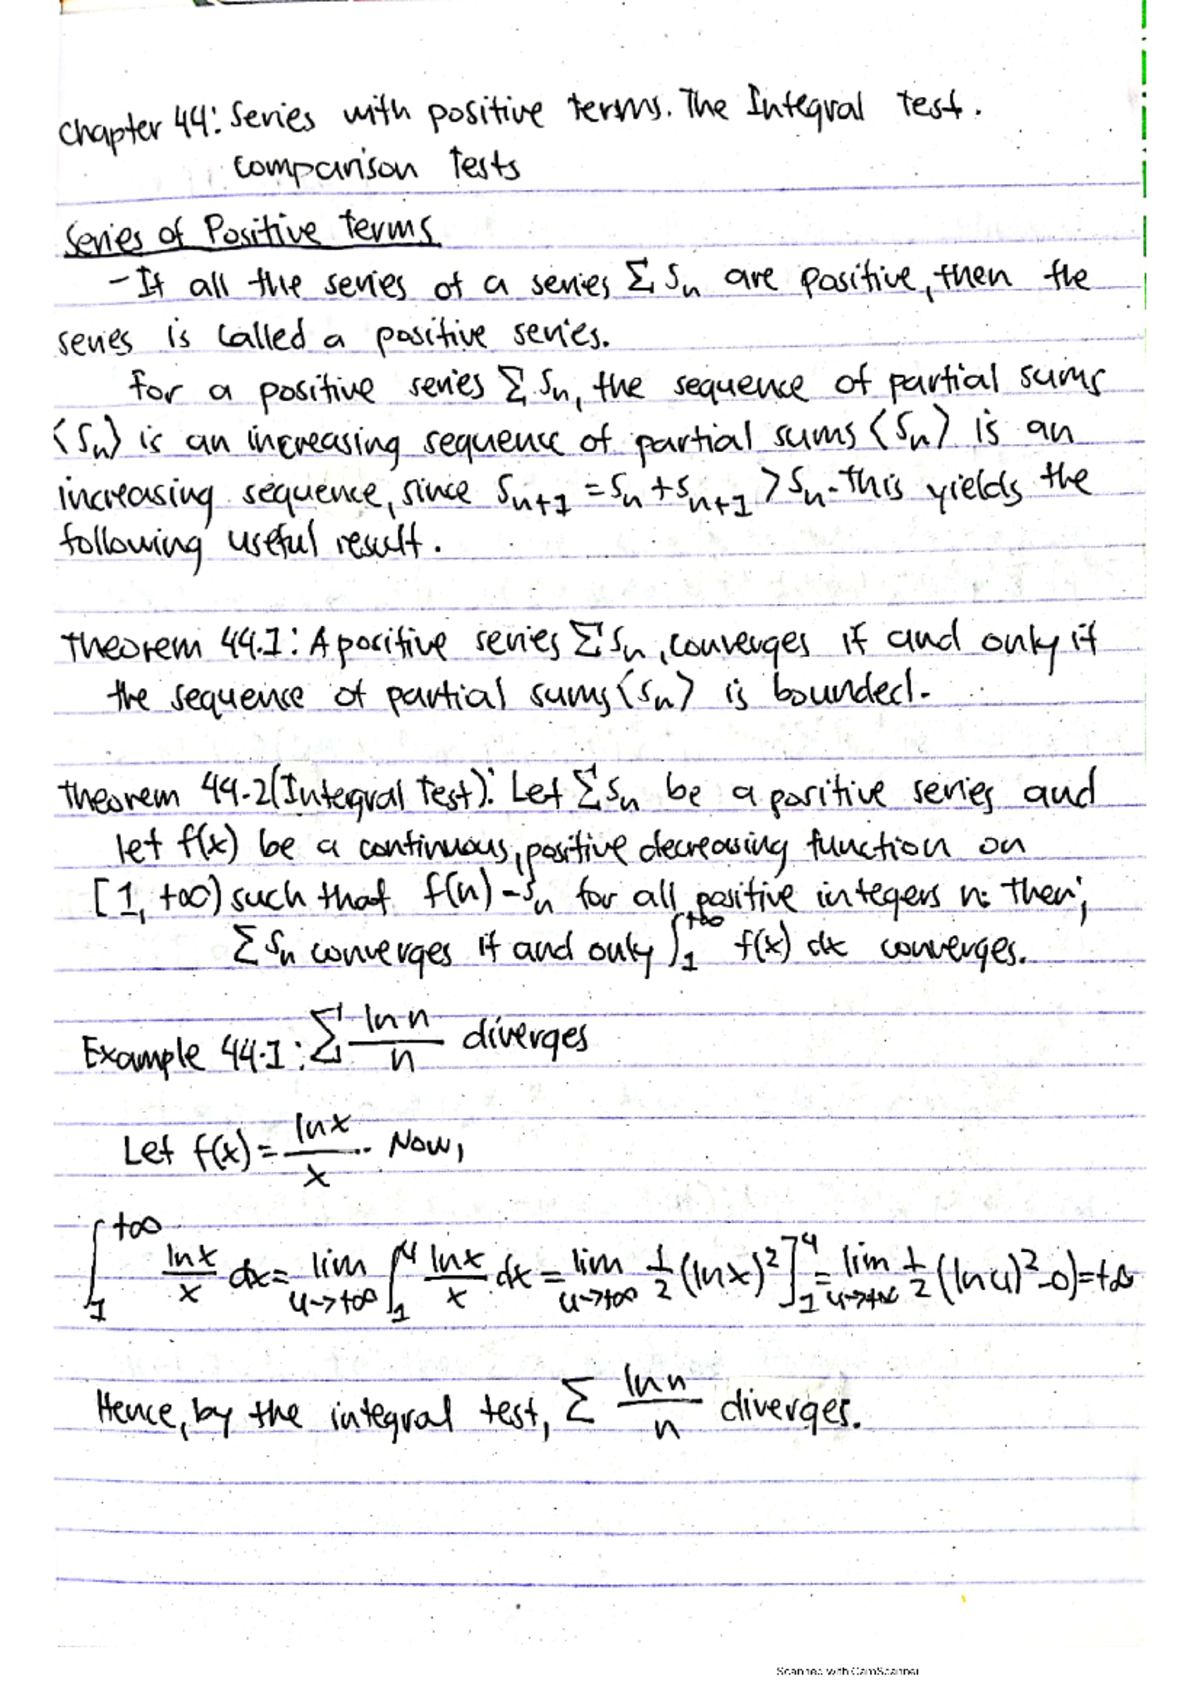 Chapter 44: Series with positive terms. The Integral Test.
Comparison Tests
Series of Positive Terms
- If all the series of a series Σ sn are positive, then the
series is called a positive series.
For a positive series Σ sn, the sequence of partial sums
⟨Sn⟩ is an increasing sequence of partial sums ⟨Sn⟩ is an
increasing sequence, since Sn+1 = Sn + sn+1 > Sn. This yields the
following useful result.
Theorem 44.1: A positive series Σ sn, converges if and only if
the sequence of partial sums ⟨Sn⟩ is bounded.
Theorem 44.2 (Integral Test): Let Σ sn be a positive series and
let f(x) be a continuous, positive decreasing function on
[1, +∞) such that f(n) - sn for all positive integers n: Then;
Σ sn converges if and only ∫₁^+∞ f(x) dx converges.
Example 44.1: Σ ln n / n diverges
Let f(x) = ln x / x . Now,
∫₁^+∞ ln x / x dx = lim u→+∞ ∫₁^u ln x / x dx = lim u→+∞ 1/2 (ln x)²]₁^u = lim u→+∞ 1/2 (ln u)² - 0) = +∞
Hence, by the integral test, Σ ln n / n diverges.
Scanned with CamScanner